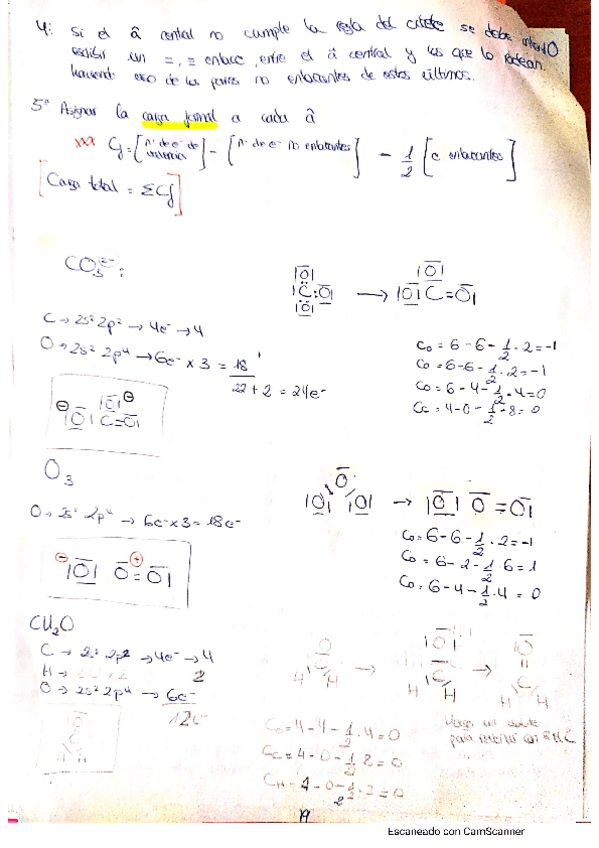 4: Si el â central no cumple la regla del octete se debe
escribir un =, ≡ enlace, entre el â central y los que lo rodean
haciendo uso de los pares no enlazantes de estos últimos.
5º Asignar la carga formal a cada â
xxx Cf = [nº de e⁻ de valencia] - [nº de e⁻ no enlazantes] - 1/2 [e enlazantes]
[Carga total = ΣCf]
CO₃²⁻:
|O̅|
|C:O̅|
|O̅|
→ |O̅|
|O̅| C=O̅|
C → 2s² 2p² → 4e⁻ → 4
O → 2s² 2p⁴ → 6e⁻ x 3 = 18
22 + 2 = 24e⁻
Co = 6 - 6 - 1/2 · 2 = -1
Co = 6 - 6 - 1/2 · 2 = -1
Co = 6 - 4 - 1/2 · 4 = 0
Cc = 4 - 0 - 1/2 · 8 = 0
⊖ |O̅| ⊖
|O̅| C=O̅|
O₃
O̅
|O̅| |O̅| → |O̅| O̅ = O̅|
O → 2s² 2p⁴ → 6e⁻ x 3 = 18e⁻
Co = 6 - 6 - 1/2 · 2 = -1
Co = 6 - 2 - 1/2 · 6 = 1
Co = 6 - 4 - 1/2 · 4 = 0
⊖ ⊕
|O̅| O̅ = O̅|
CH₂O
C → 2s² 2p² → 4e⁻ → 4
H → 2
O → 2s² 2p⁴ → 6e⁻
12e⁻
O
C
H H
→ |O̅|
C
H H
→ O̅
||
C
H H
para
Co = 4 - 4 - 1/2 · 4 = 0
Cc = 4 - 0 - 1/2 8 = 0
CH = 1 - 0 - 1/2 · 2 = 0
19
Escaneado con CamScanner